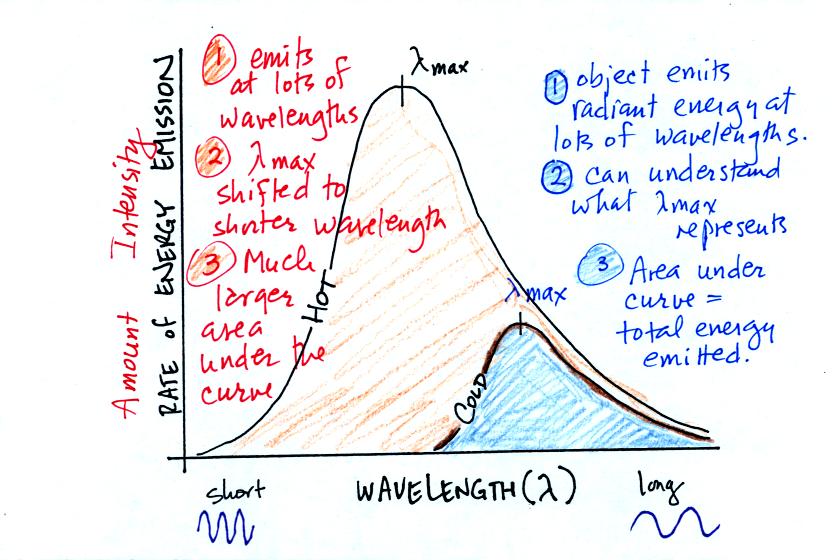 Amount Intensity
RATE of ENERGY EMISSION
1 emits
at lots of
wavelengths
2 λmax
shifted to
shorter wavelength
3 Much
larger
area
under the
curve
λmax
HOT
1 object emits
radiant energy at
lots of wavelengths.
2 can understand
what λmax
represents
3 Area under
curve =
total energy
emitted.
λmax
COLD
short
WAVELENGTH (λ)
long